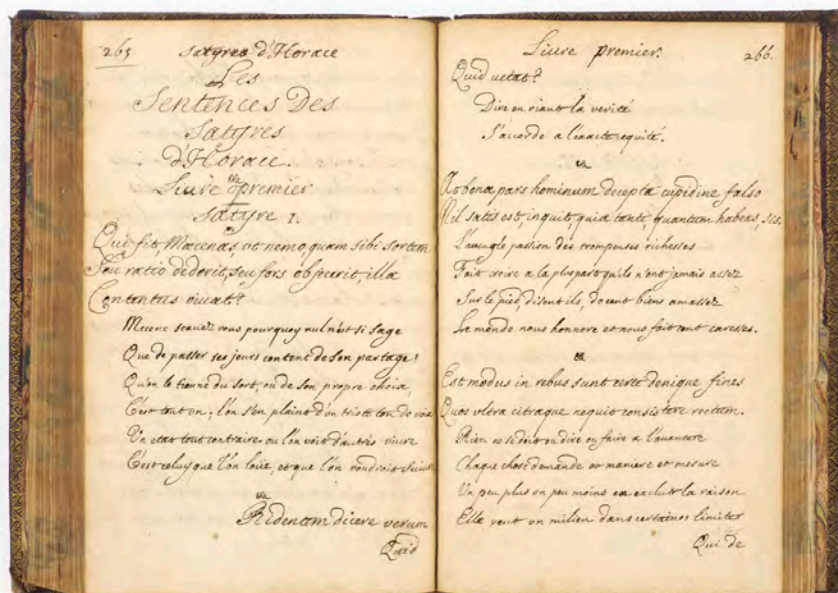 265 Satyres d'Horace
Les
Sentences Des
Satyres
d'Horace.
Livre premier
Satyre 1.
Qui fit Mæcenas, vt nemo, quam sibi sortem
Seu ratio dederit, seu fors objecerit, illa
Contentus viuat?
Mecene scauez vous pourquoy nul n'est si sage
Que de passer ses jours content de son partage?
Qu'on le tienne du sort, ou de son propre choix,
C'est tout vn; l'on s'en plaint d'vn triste ton de voix
Vn etat tout contraire ou l'on voit d'autres viure
C'est celuy que l'on loüe, et que l'on voudroit suiure
Ridentem dicere verum
Quid
Liure premier. 266.
Quid uetat?
Dire en riant la verité
S'accorde a l'exacte equité.
At bona pars hominum decepta cupidine falso
Nil satis est, inquit, quia tanti, quantum habeas, sis.
L'aueugle passion des trompeuses richesses
Fait croire a la pluspart qu'ils n'ont jamais assez
Sur le pied, disent ils, de cent biens amassez
Le monde nous honnore et nous fait cent caresses.
Est modus in rebus sunt certi denique fines
Quos vltra citraque nequit consistere rectum.
Rien ne se doit ou dire ou faire a l'auanture
Chaque chose demande et maniere et mesure
Vn peu plus vn peu moins en exclut la raison
Elle veut vn milieu dans certaines limites
Qui de